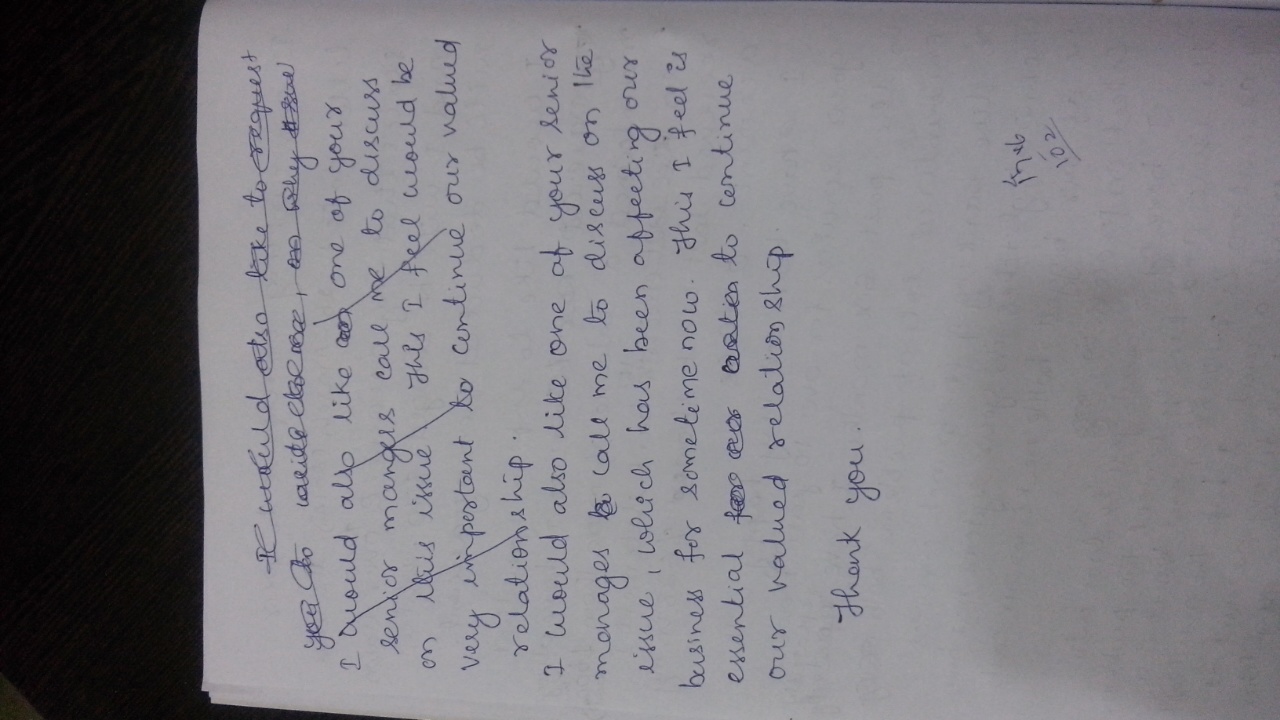 I would also like to request
you to write to me, on why
I would also like one of your
senior manges call me to discuss
on this issue This I feel would be
very important to continue our valued
relationship.
I would also like one of your senior
manages to call me to discuss on the
issue, which has been affecting our
business for sometime now. This I feel is
essential to continue
our valued relationship.
Thank you.
102